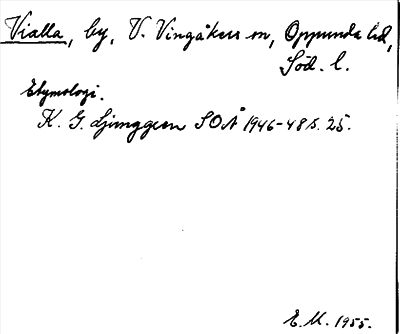 Vialla, by, V. Vingåkers sn, Oppunda hd,
Söd. l.
Etymologi.
K. G. Ljunggren SOÅ 1946-48 s. 25.
E. M. 1955.